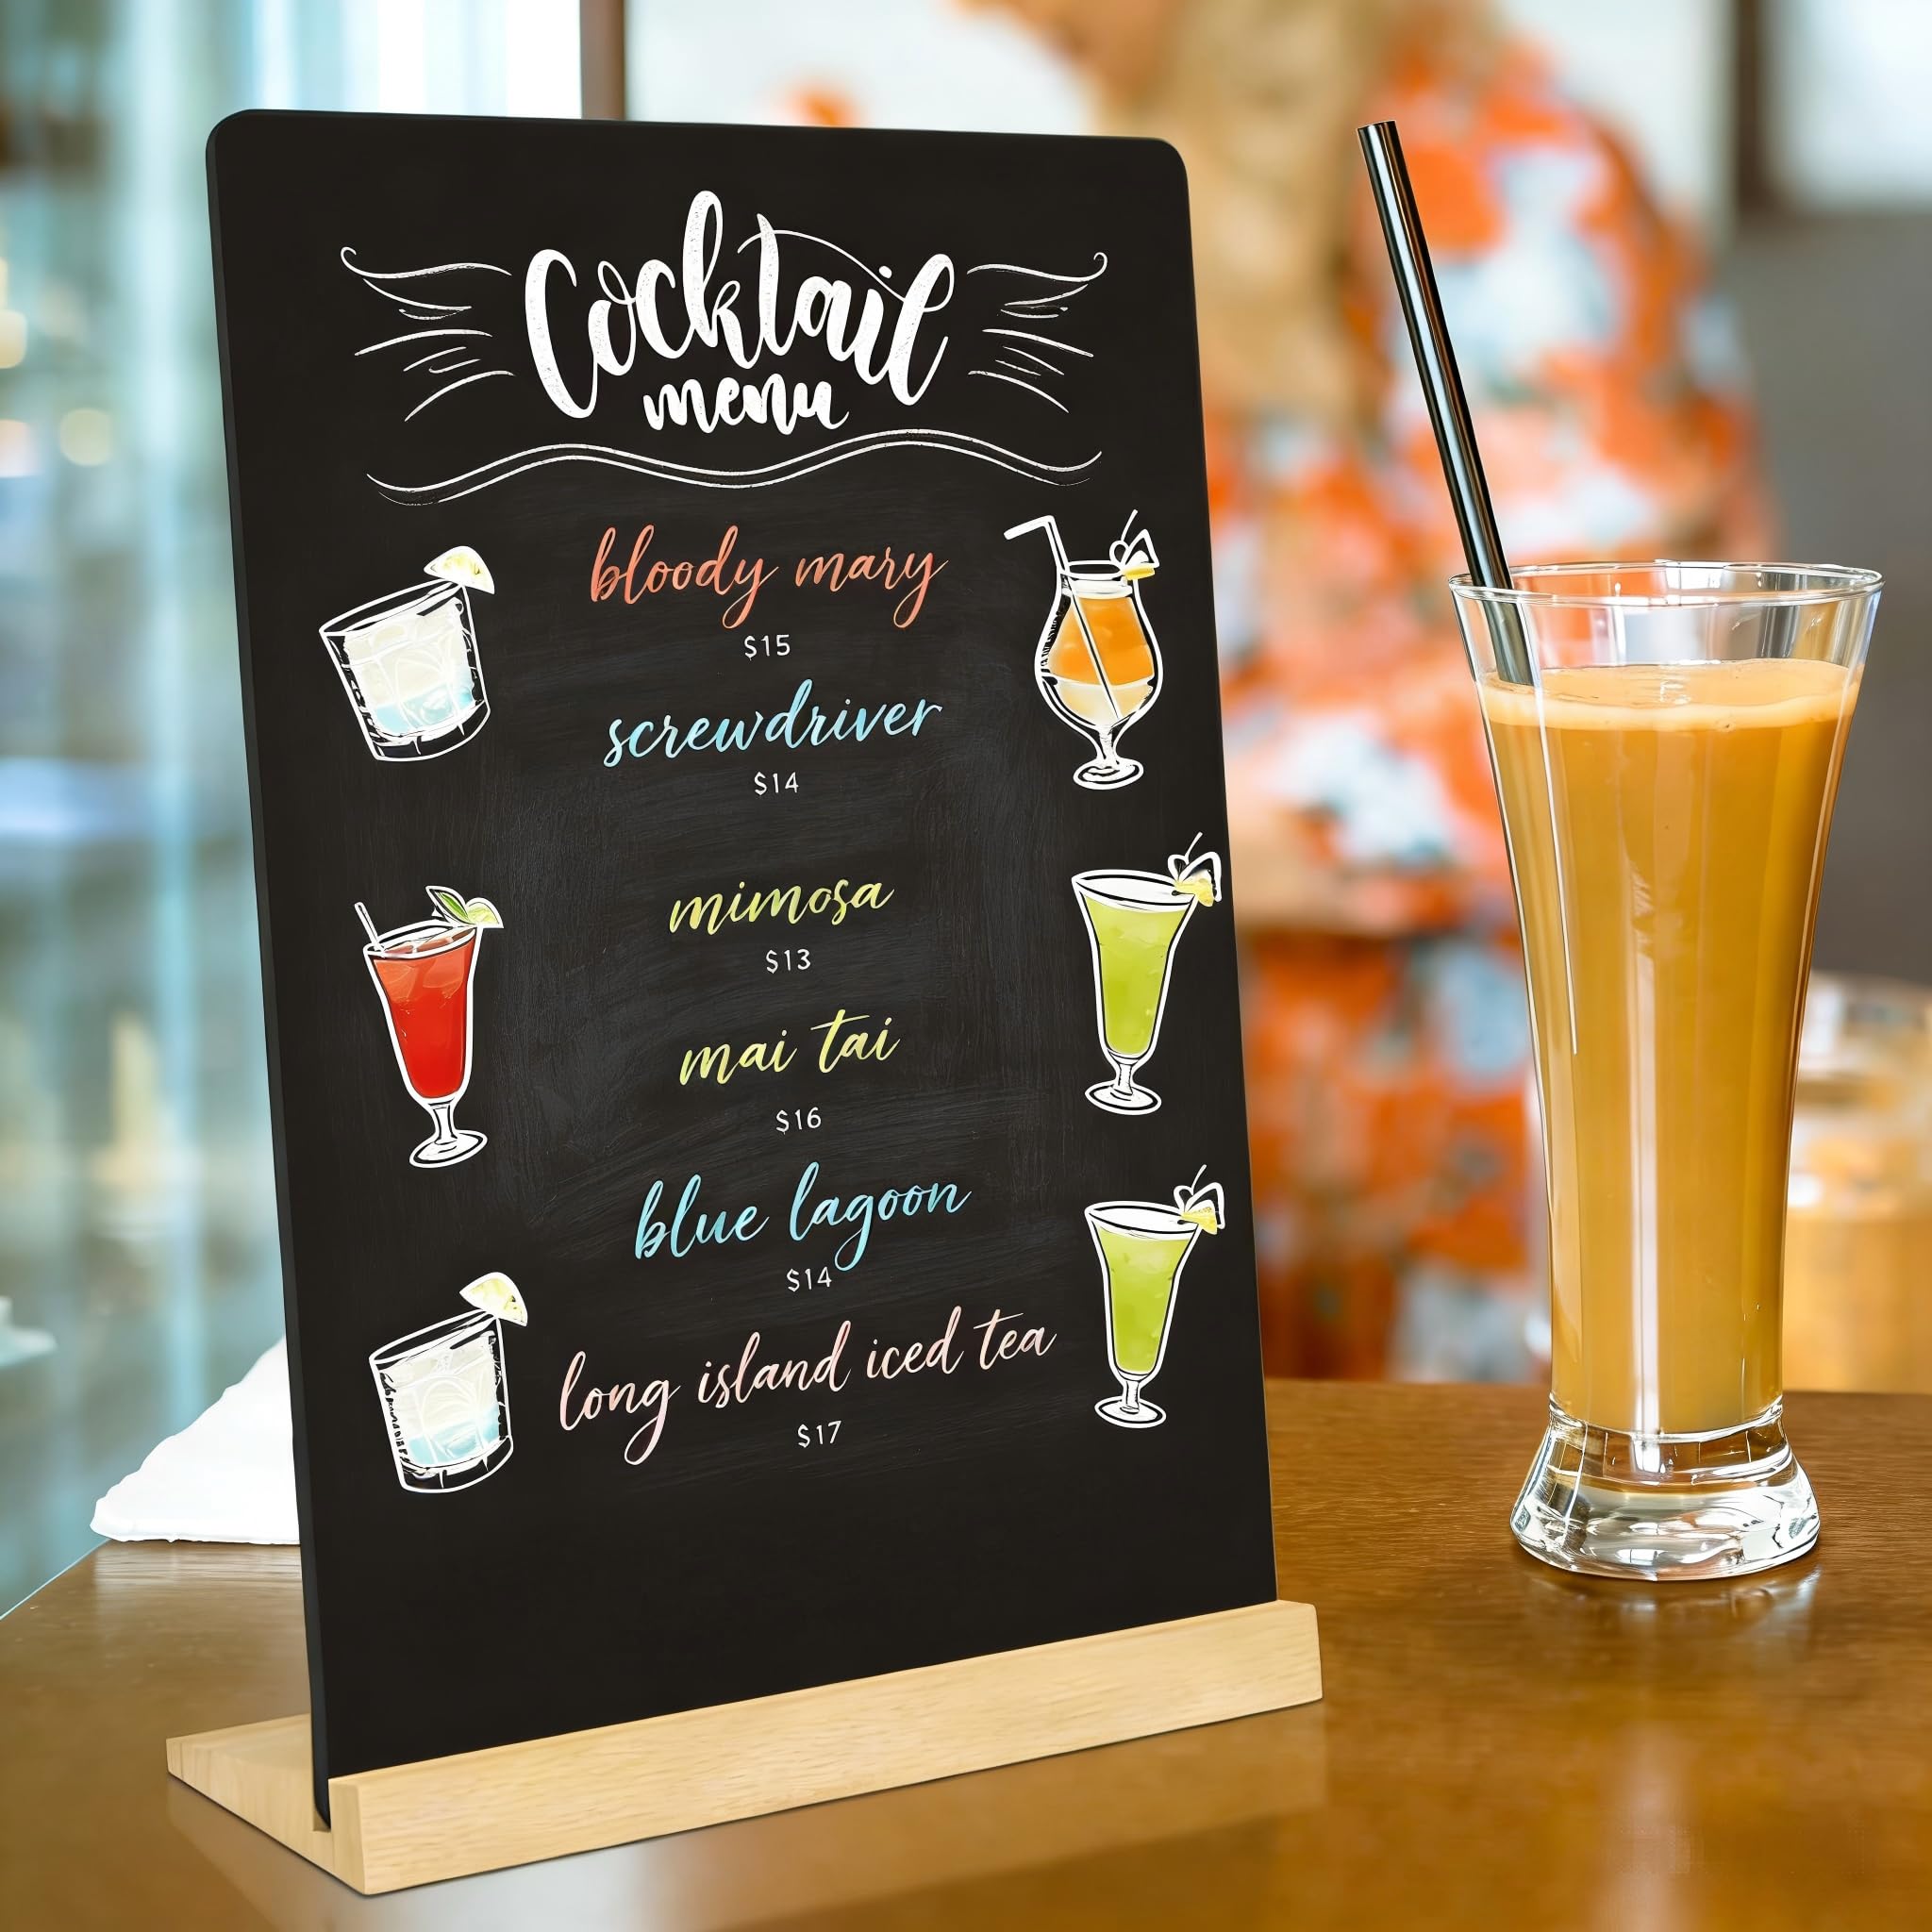 Cocktail
menu
bloody mary
$15
screwdriver
$14
mimosa
$13
mai tai
$16
blue lagoon
$14
long island iced tea
$17